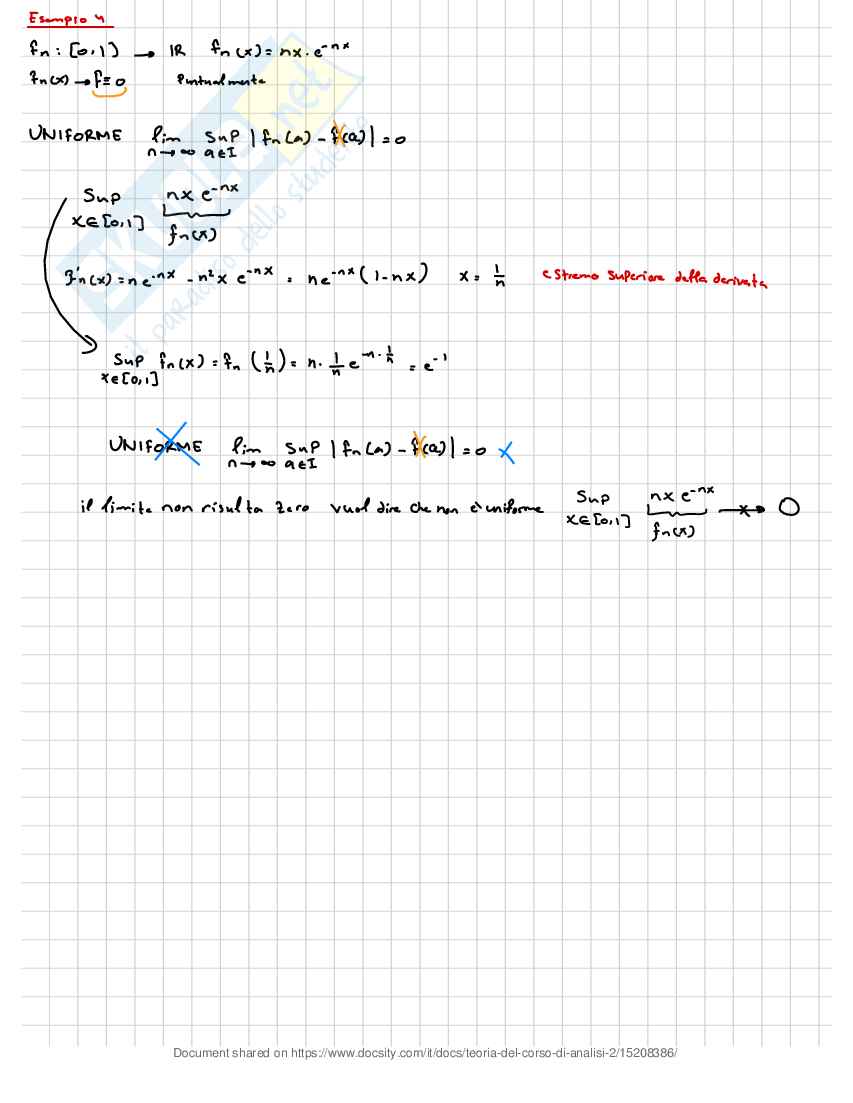 Esempio 4
fn : [0,1) → IR fn(x) = nx · e^-nx
fn(x) → f ≡ 0 Puntualmente
UNIFORME lim n→∞ Sup a∈I | fn(a) - f(a) | = 0
Sup x∈[0,1] nx e^-nx
fn(x)
f'n(x) = n e^-nx - n²x e^-nx = n e^-nx (1-nx) x = 1/n estremo superiore della derivata
Sup x∈[0,1] fn(x) = fn (1/n) = n · 1/n e^-n·1/n = e^-1
UNIFORME lim n→∞ Sup a∈I | fn(a) - f(a) | = 0 X
il limite non risulta zero vuol dire che non è uniforme Sup x∈[0,1] nx e^-nx → 0
fn(x)
SKUOLA.net
il paradiso dello studente
Document shared on https://www.docsity.com/it/docs/teoria-del-corso-di-analisi-2/15208386/